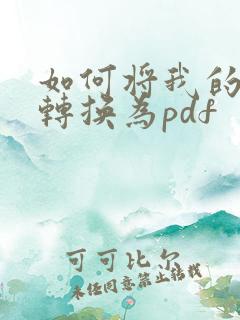 如何將我的
轉換為pdf
可可比尔
未经同意禁止转载